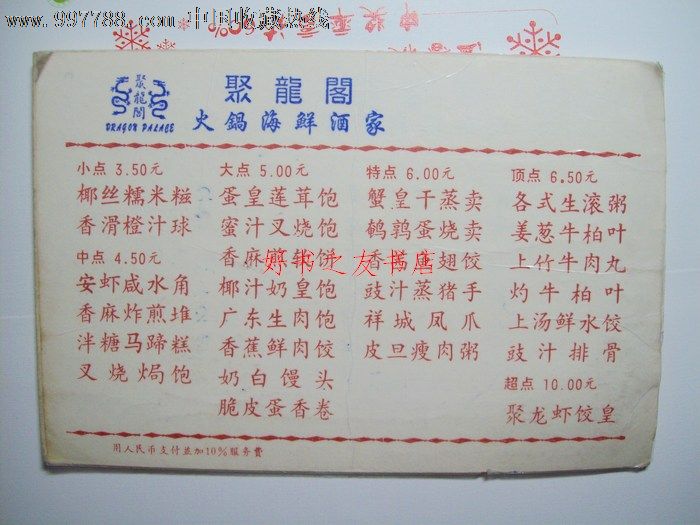 www.997788.com 中国收藏热线
聚龍閣
DRAGON PALACE
聚龍閣
火鍋海鮮酒家
小点 3.50元
椰丝糯米糍
香滑橙汁球
中点 4.50元
安虾咸水角
香麻炸煎堆
泮糖马蹄糕
叉烧焗饱
大点 5.00元
蛋皇莲茸饱
蜜汁叉烧饱
椰汁奶皇饱
广东生肉饱
香蕉鲜肉饺
奶白馒头
脆皮蛋香卷
特点 6.00元
蟹皇干蒸卖
鹌鹑蛋烧卖
豉汁蒸猪手
祥城凤爪
皮旦瘦肉粥
顶点 6.50元
各式生滚粥
姜葱牛柏叶
上竹牛肉丸
灼牛柏叶
上汤鲜水饺
豉汁排骨
超点 10.00元
聚龙虾饺皇
好书之友书店
用人民币支付並加10%服务费